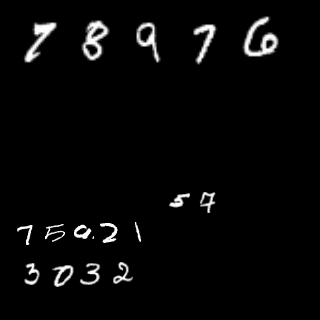 78976
57
75921
3032